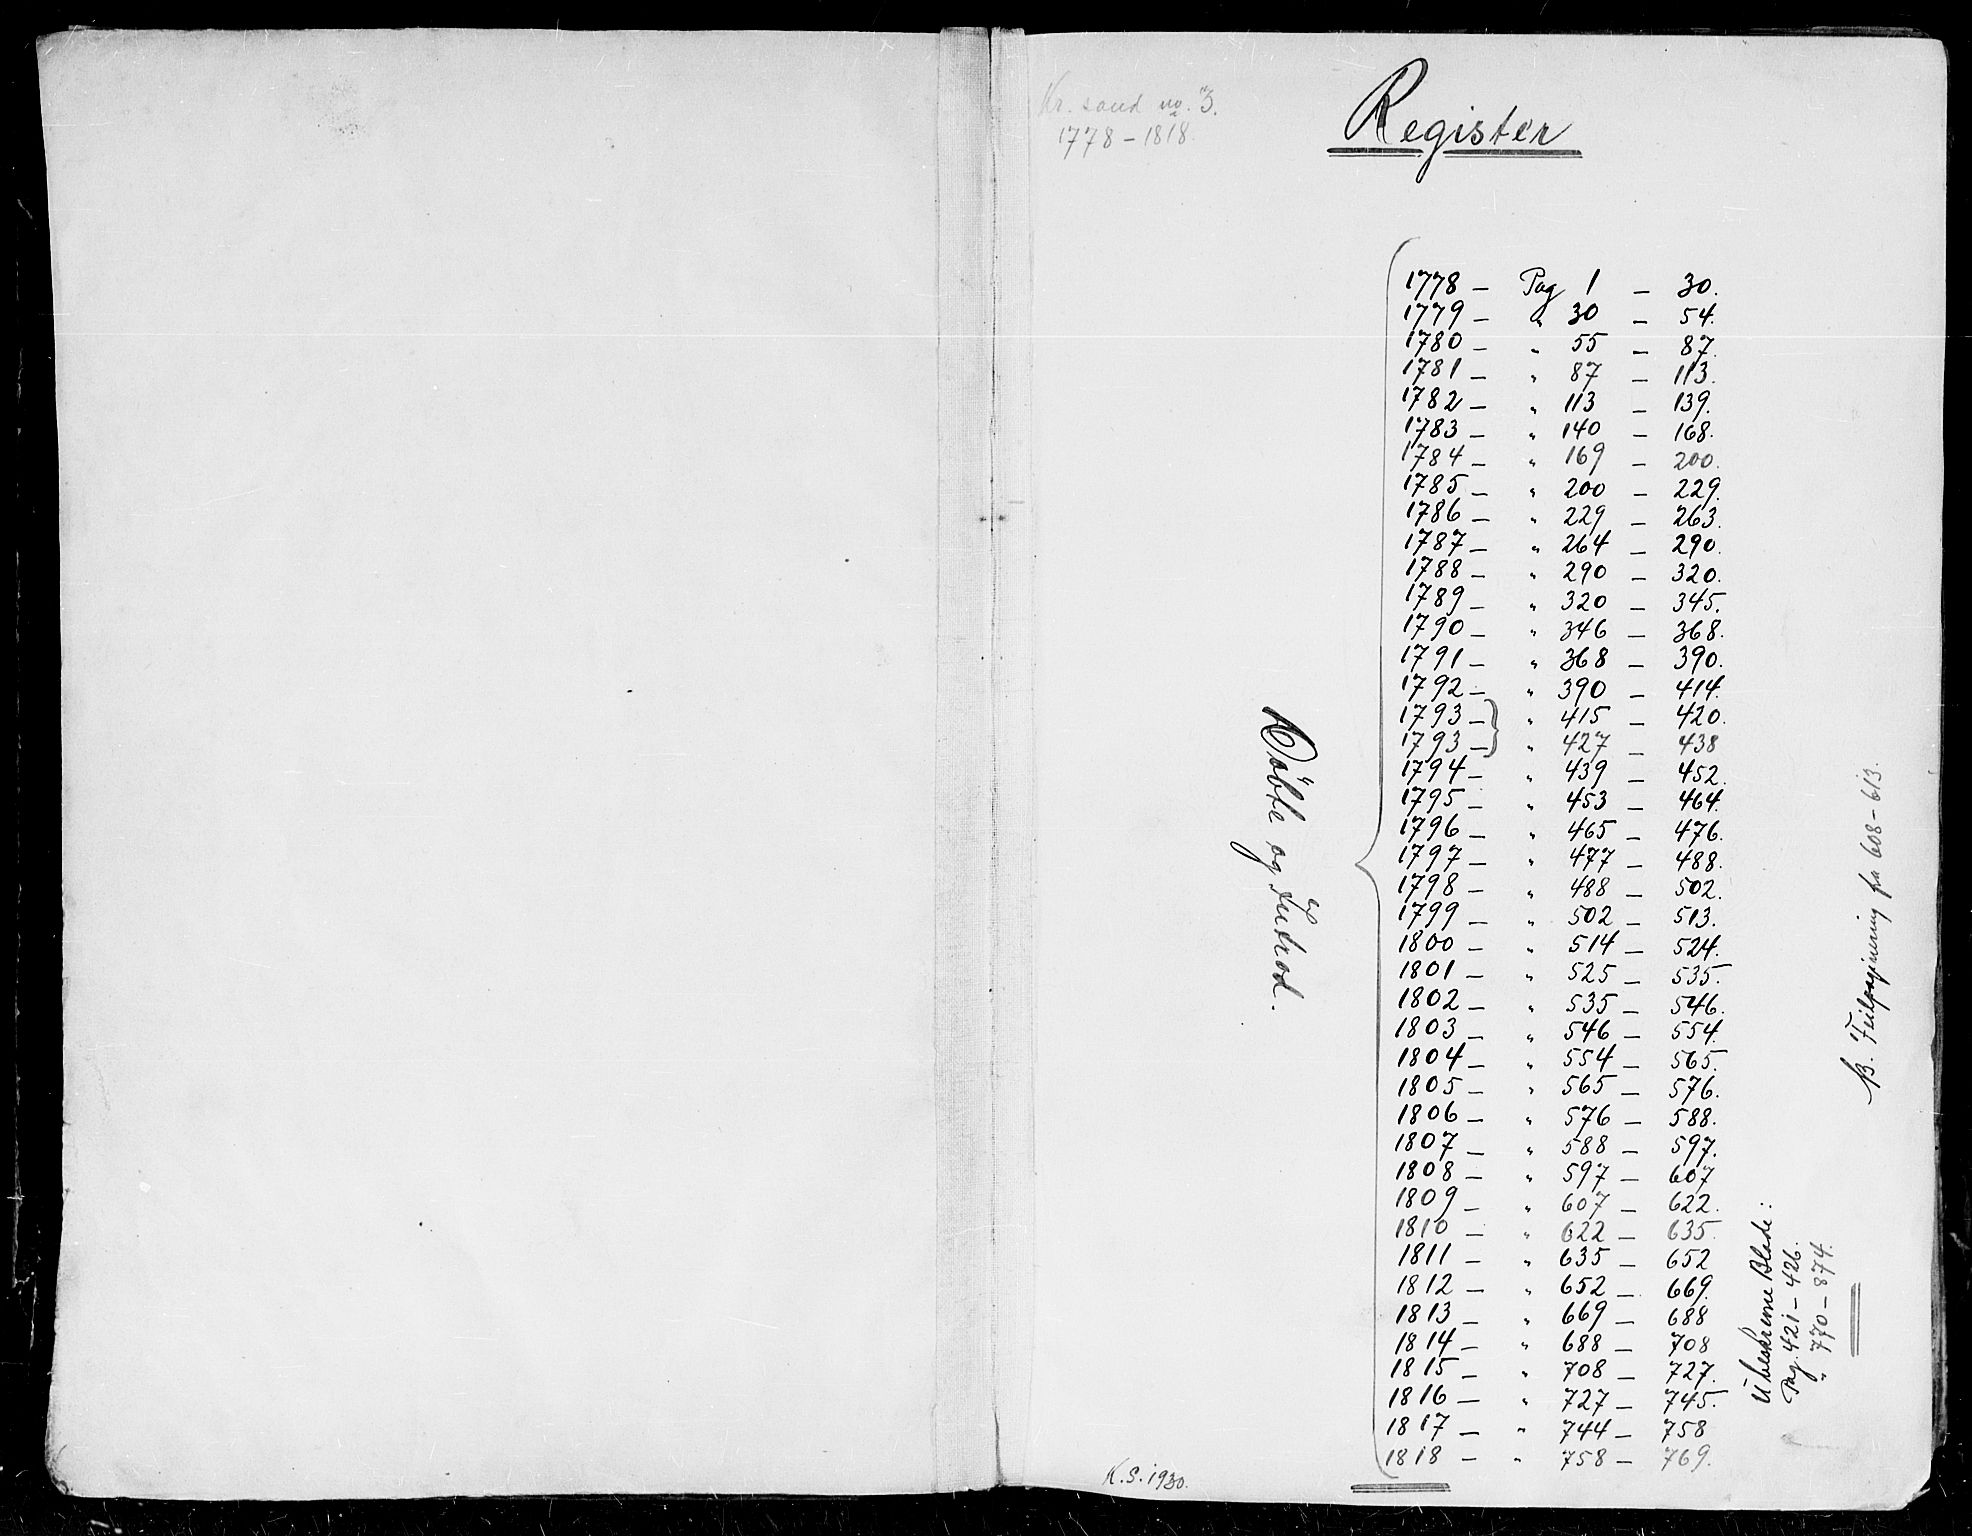 Kr. sand no. 3.
1778 – 1818.
Register
Døbte og Introd.
1778 – Pag 1 – 30.
1779 – " 30 – 54.
1780 – " 55 – 87.
1781 – " 87 – 113.
1782 – " 113 – 139.
1783 – " 140 – 168.
1784 – " 169 – 200.
1785 – " 200 – 229.
1786 – " 229 – 263.
1787 – " 264 – 290.
1788 – " 290 – 320.
1789 – " 320 – 345.
1790 – " 346 – 368.
1791 – " 368 – 390.
1792 – " 390 – 414.
1793 – " 415 – 420.
1793 – " 427 – 438
1794 – " 439 – 452.
1795 – " 453 – 464.
1796 – " 465 – 476.
1797 – " 477 – 488.
1798 – " 488 – 502.
1799 – " 502 – 513.
1800 – " 514 – 524.
1801 – " 525 – 535.
1802 – " 535 – 546.
1803 – " 546 – 554.
1804 – " 554 – 565.
1805 – " 565 – 576.
1806 – " 576 – 588.
1807 – " 588 – 597.
1808 – " 597 – 607
1809 – " 607 – 622.
1810 – " 622 – 635.
1811 – " 635 – 652
1812 – " 652 – 669.
1813 – " 669 – 688
1814 – " 688 – 708
1815 – " 708 – 727.
1816 – " 727 – 745.
1817 – " 744 – 758
1818 – " 758 – 769.
Ubeskrevne Blade:
Pag. 421 – 426.
" 770 – 874.
Feilpaginering fra 608 – 613.
K.S. 1930.